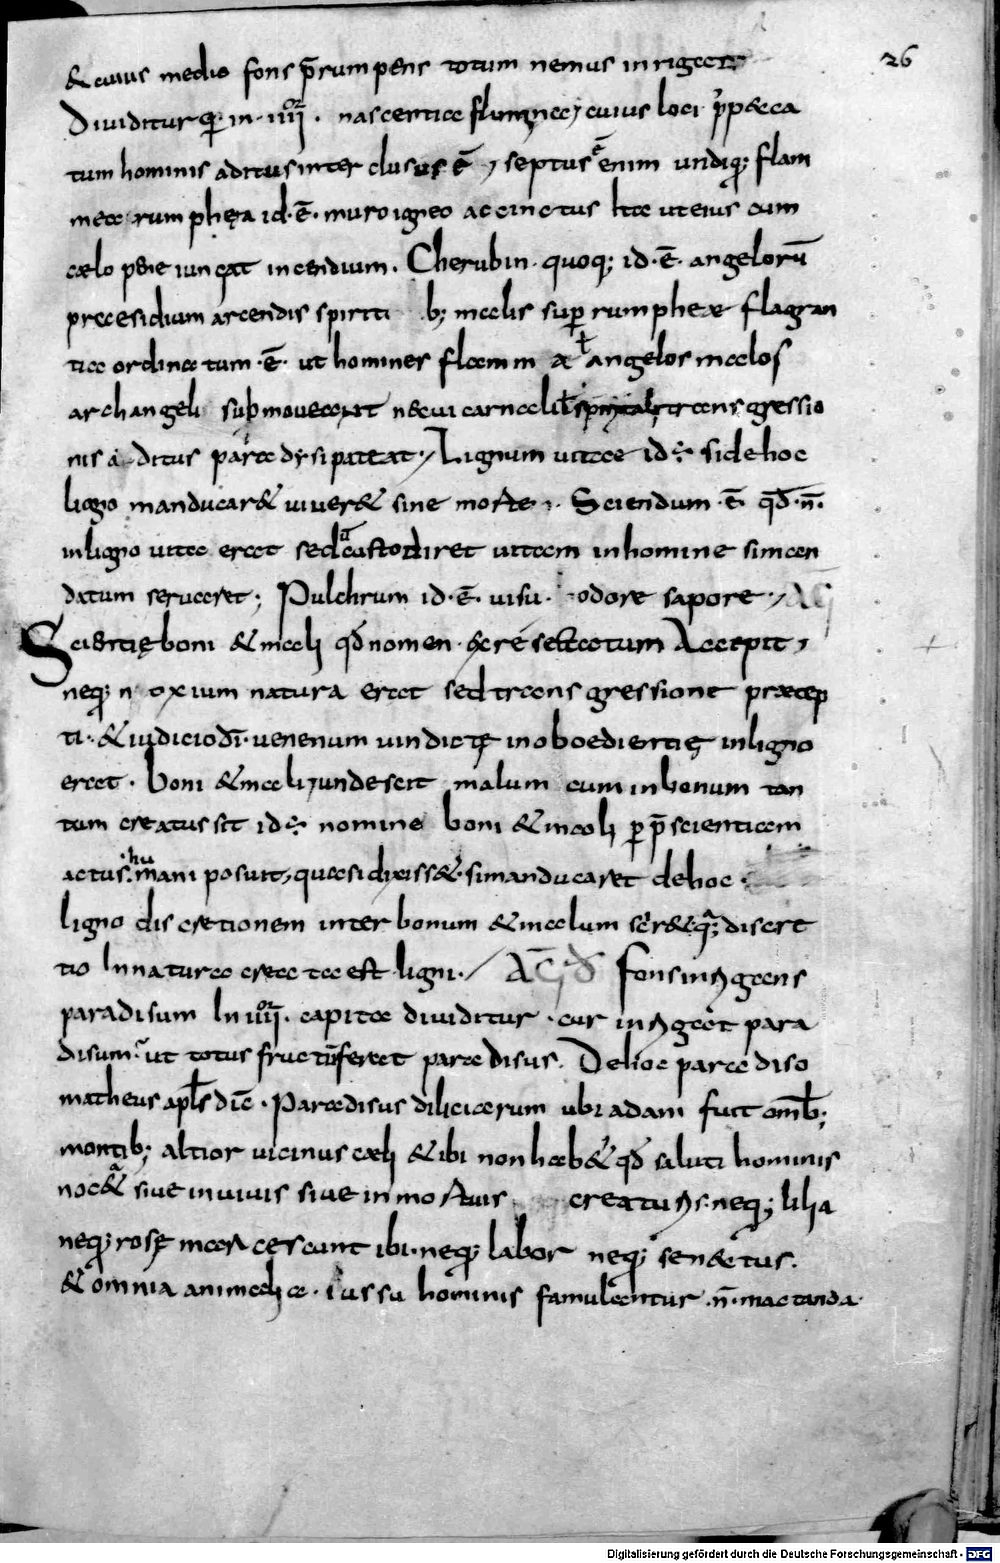 26
& cuius medio fons prērumpens totum nemus inrigat
Diuiditur q̄ in · iiii · nascentia flumina, cuius loci p' p&ca
tum hominis aditus interclusus ē, septus ē enim undiq; flam
mea rumphęa id·ē· muro igneo accinctus Ita ut eius cum
cælo pene iungat incendium. Cherubin quoq; id·ē· angelorū
præsidium arcendis spiriti b; malis sup rumpheæ flagran
tia ordinatum·ē· ut homines flamm a ł angelos malos
archangeli submoueant ne cui carnali ł transgressio
nis aditus paradysi pateat, Lignum uitae id ÷ si dehoc
ligno manducar& uiuer& sine morte, Sciendum·ē· qđ·n̄·
inligno uitae erat sed custodiret uitam inhomine siman
datum seruaret; Pulchrum id·ē· uisu· odore sapore, AḠ
Scientię boni & mali qđ nomen Accepit,
neq; noxium natura erat sed transgressione præcep
ti·&iudicio dī· uenenum uindictę inoboedientię inligno
erat· boni &mali, unde scit malum cum inbonum tan
tum creatus sit id ÷ nomine boni &mali p p̄scientiam
actus·humani posuit, quasi dixiss& simanducaret dehoc ·
ligno discretionem inter bonum &malum scir& discre
tio In natura creata est ligni· / AḠ Fons inrigans
paradisum In iiii· capita diuiditur · cur inrigat para
disum· ut totus fructiferet paradisus. Dehoc paradiso
matheus apłs dīc · Paradisus diliciarum ubi adam fuit omīb;
montib; altior uicinus cæli &ibi non hab& qđ saluti hominis
noc& siue inuiuis siue inmortuis creaturis· neq; lilia
neq; rosę marcescunt ibi· neq; labor neq; sen&tus.
& omnia animalia · iussu hominis famulantur · n̄· mactanda·
Digitalisierung gefördert durch die Deutsche Forschungsgemeinschaft - DFG